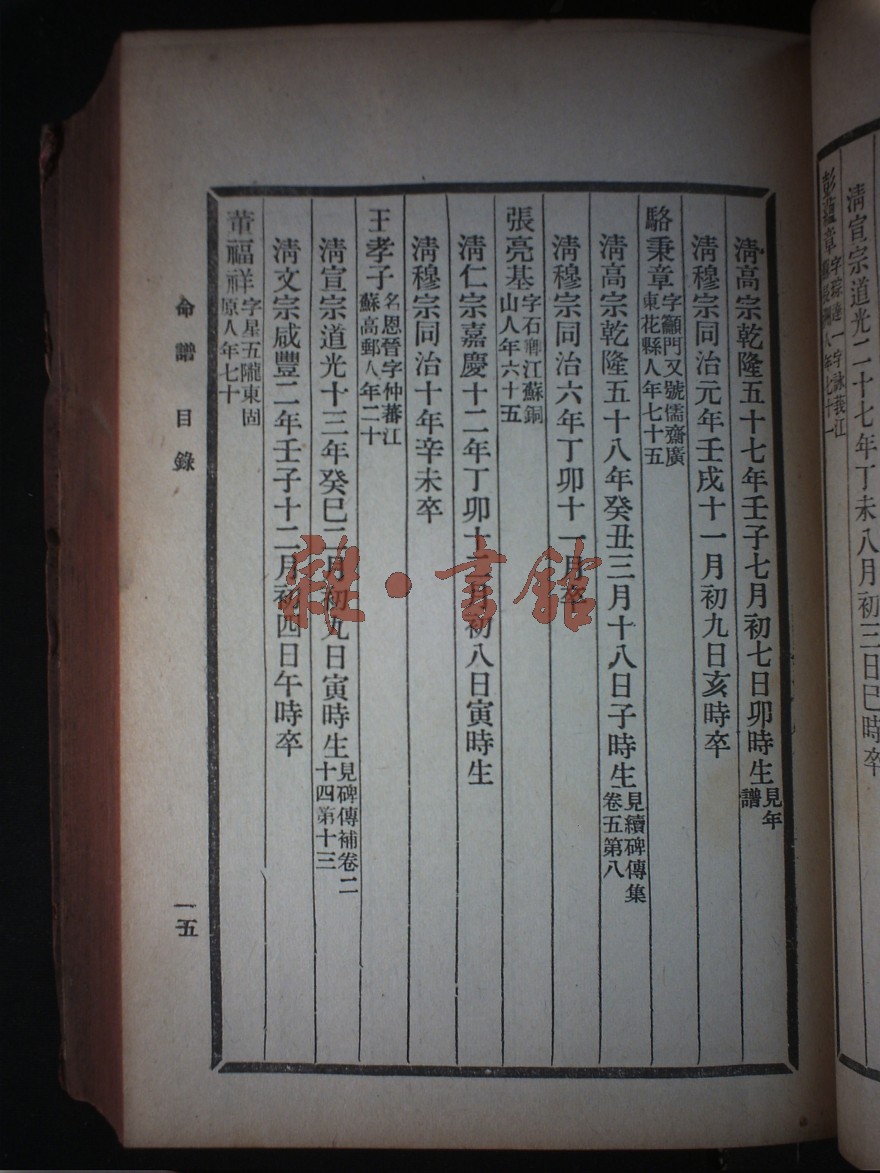 清宣宗道光二十七年丁未八月初三日巳時卒
彭蘊章
清高宗乾隆五十七年壬子七月初七日卯時生見年譜
清穆宗同治元年壬戌十一月初九日亥時卒
駱秉章字籲門又號儒齋廣東花縣人年七十五
清高宗乾隆五十八年癸丑三月十八日子時生見續碑傳集卷五第八
清穆宗同治六年丁卯十一月卒
張亮基字石卿江蘇銅山人年六十五
清仁宗嘉慶十二年丁卯十二月初八日寅時生
清穆宗同治十年辛未卒
王孝子名恩晉字仲蕃江蘇高郵人年二十
清宣宗道光十三年癸巳二月初九日寅時生見碑傳補卷二十四第十三
清文宗咸豐二年壬子十二月初四日午時卒
董福祥字星五隴東固原人年七十
命譜目錄
一五
雜·書館